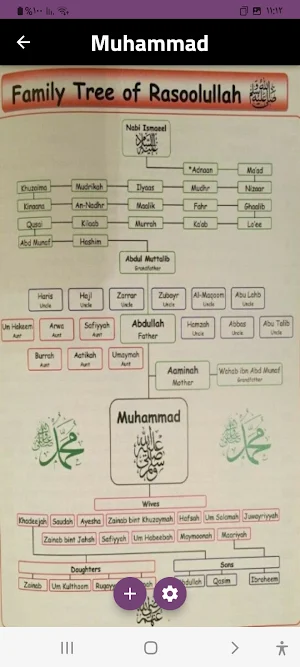 %١٠٠
١١:١٢
Muhammad
Family Tree of Rasoolullah ﷺ
Nabi Ismaeel
*Adnaan Ma'ad
Khuzaima Mudrikah Ilyaas Mudhr Nizaar
Kinaana An-Nadhr Maalik Fahr Ghaalib
Qusai Kilaab Murrah Ka'ab Lo'ee
Abd Munaf Hashim
Abdul Muttalib
Grandfather
Haris Hajl Zarrar Zubayr Al-Maqoom Abu Lahb
Uncle Uncle Uncle Uncle Uncle Uncle
Um Hakeem Arwa Safiyyah Abdullah Hamzah Abbas Abu Talib
Aunt Aunt Aunt Father Uncle Uncle Uncle
Burrah Aatikah Umaymah
Aunt Aunt Aunt
Aaminah Wahab ibn Abd Munaf
Mother Grandfather
Muhammad
صلى الله عليه وسلم
محمد محمد
Wives
Khadeejah Saudah Ayesha Zainab bint Khuzaymah Hafsah Um Salamah Juwayriyyah
Zainab bint Jahsh Safiyyah Um Habeebah Maymoonah Maariyah
Daughters Sons
Zainab Um Kulthoom Qasim Ibraheem